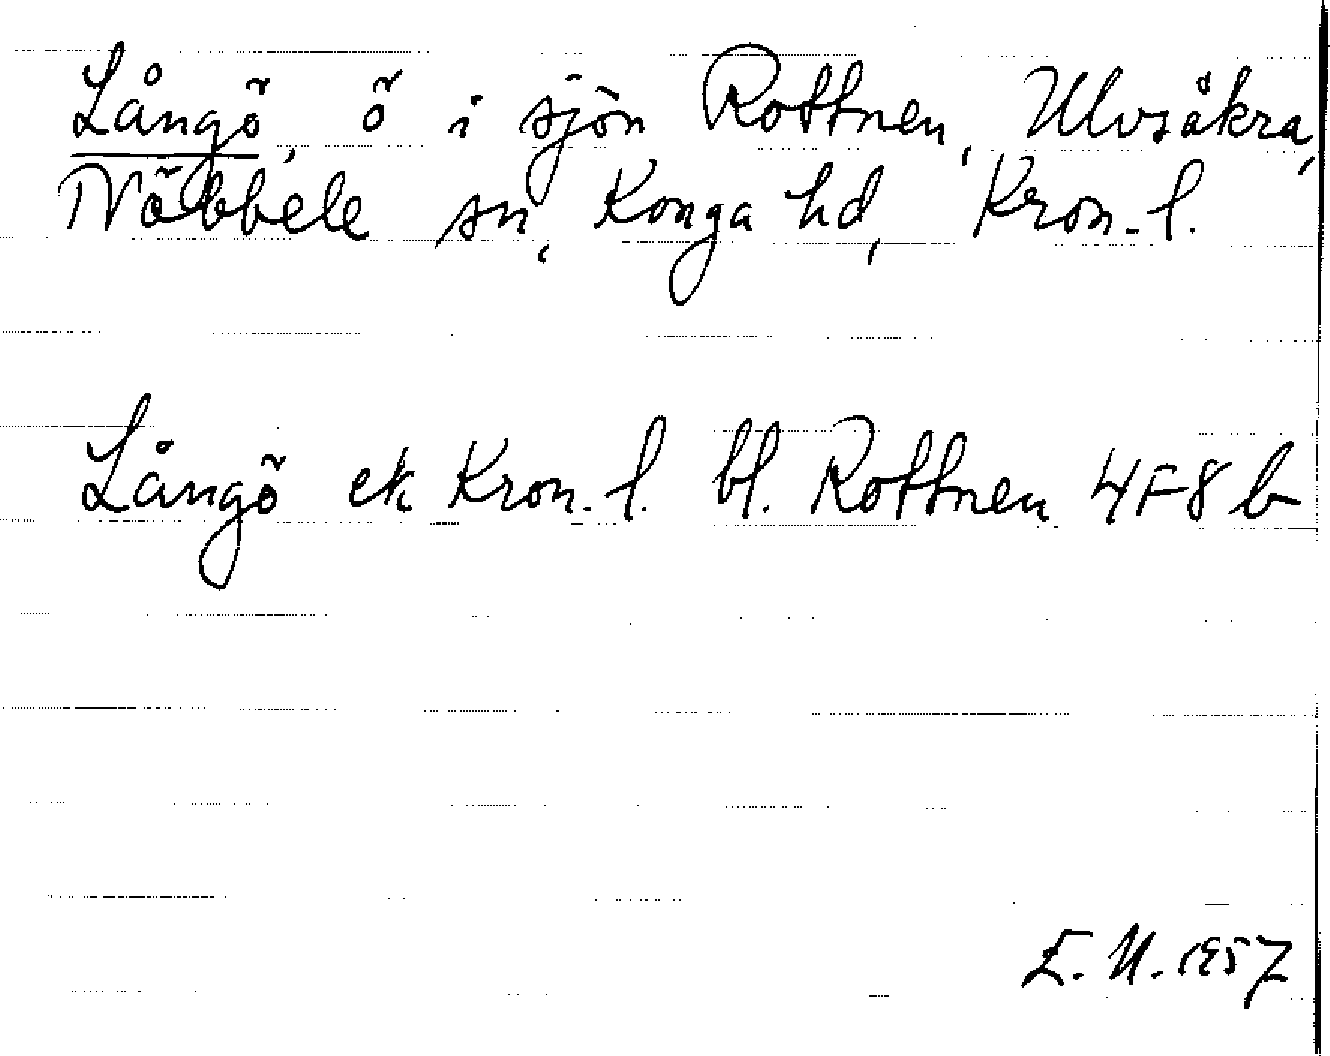 Långö, ö i sjön Rottnen, Ulvsåkra,
Nöbbele sn, Konga hd, Kron. l.
Långö ek Kron. l. bl. Rottnen 4F8b
E. U. 1957